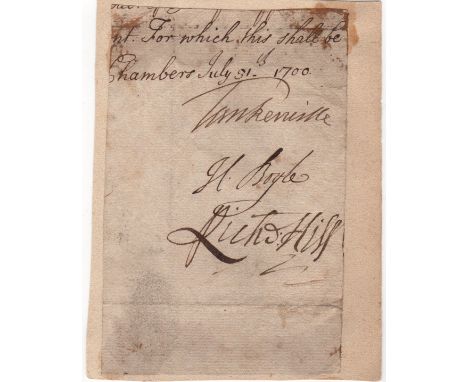 nt. For which this shall be
Chambers July 31. 1700.
Tankerville
H. Boyle
Rich.d Hill